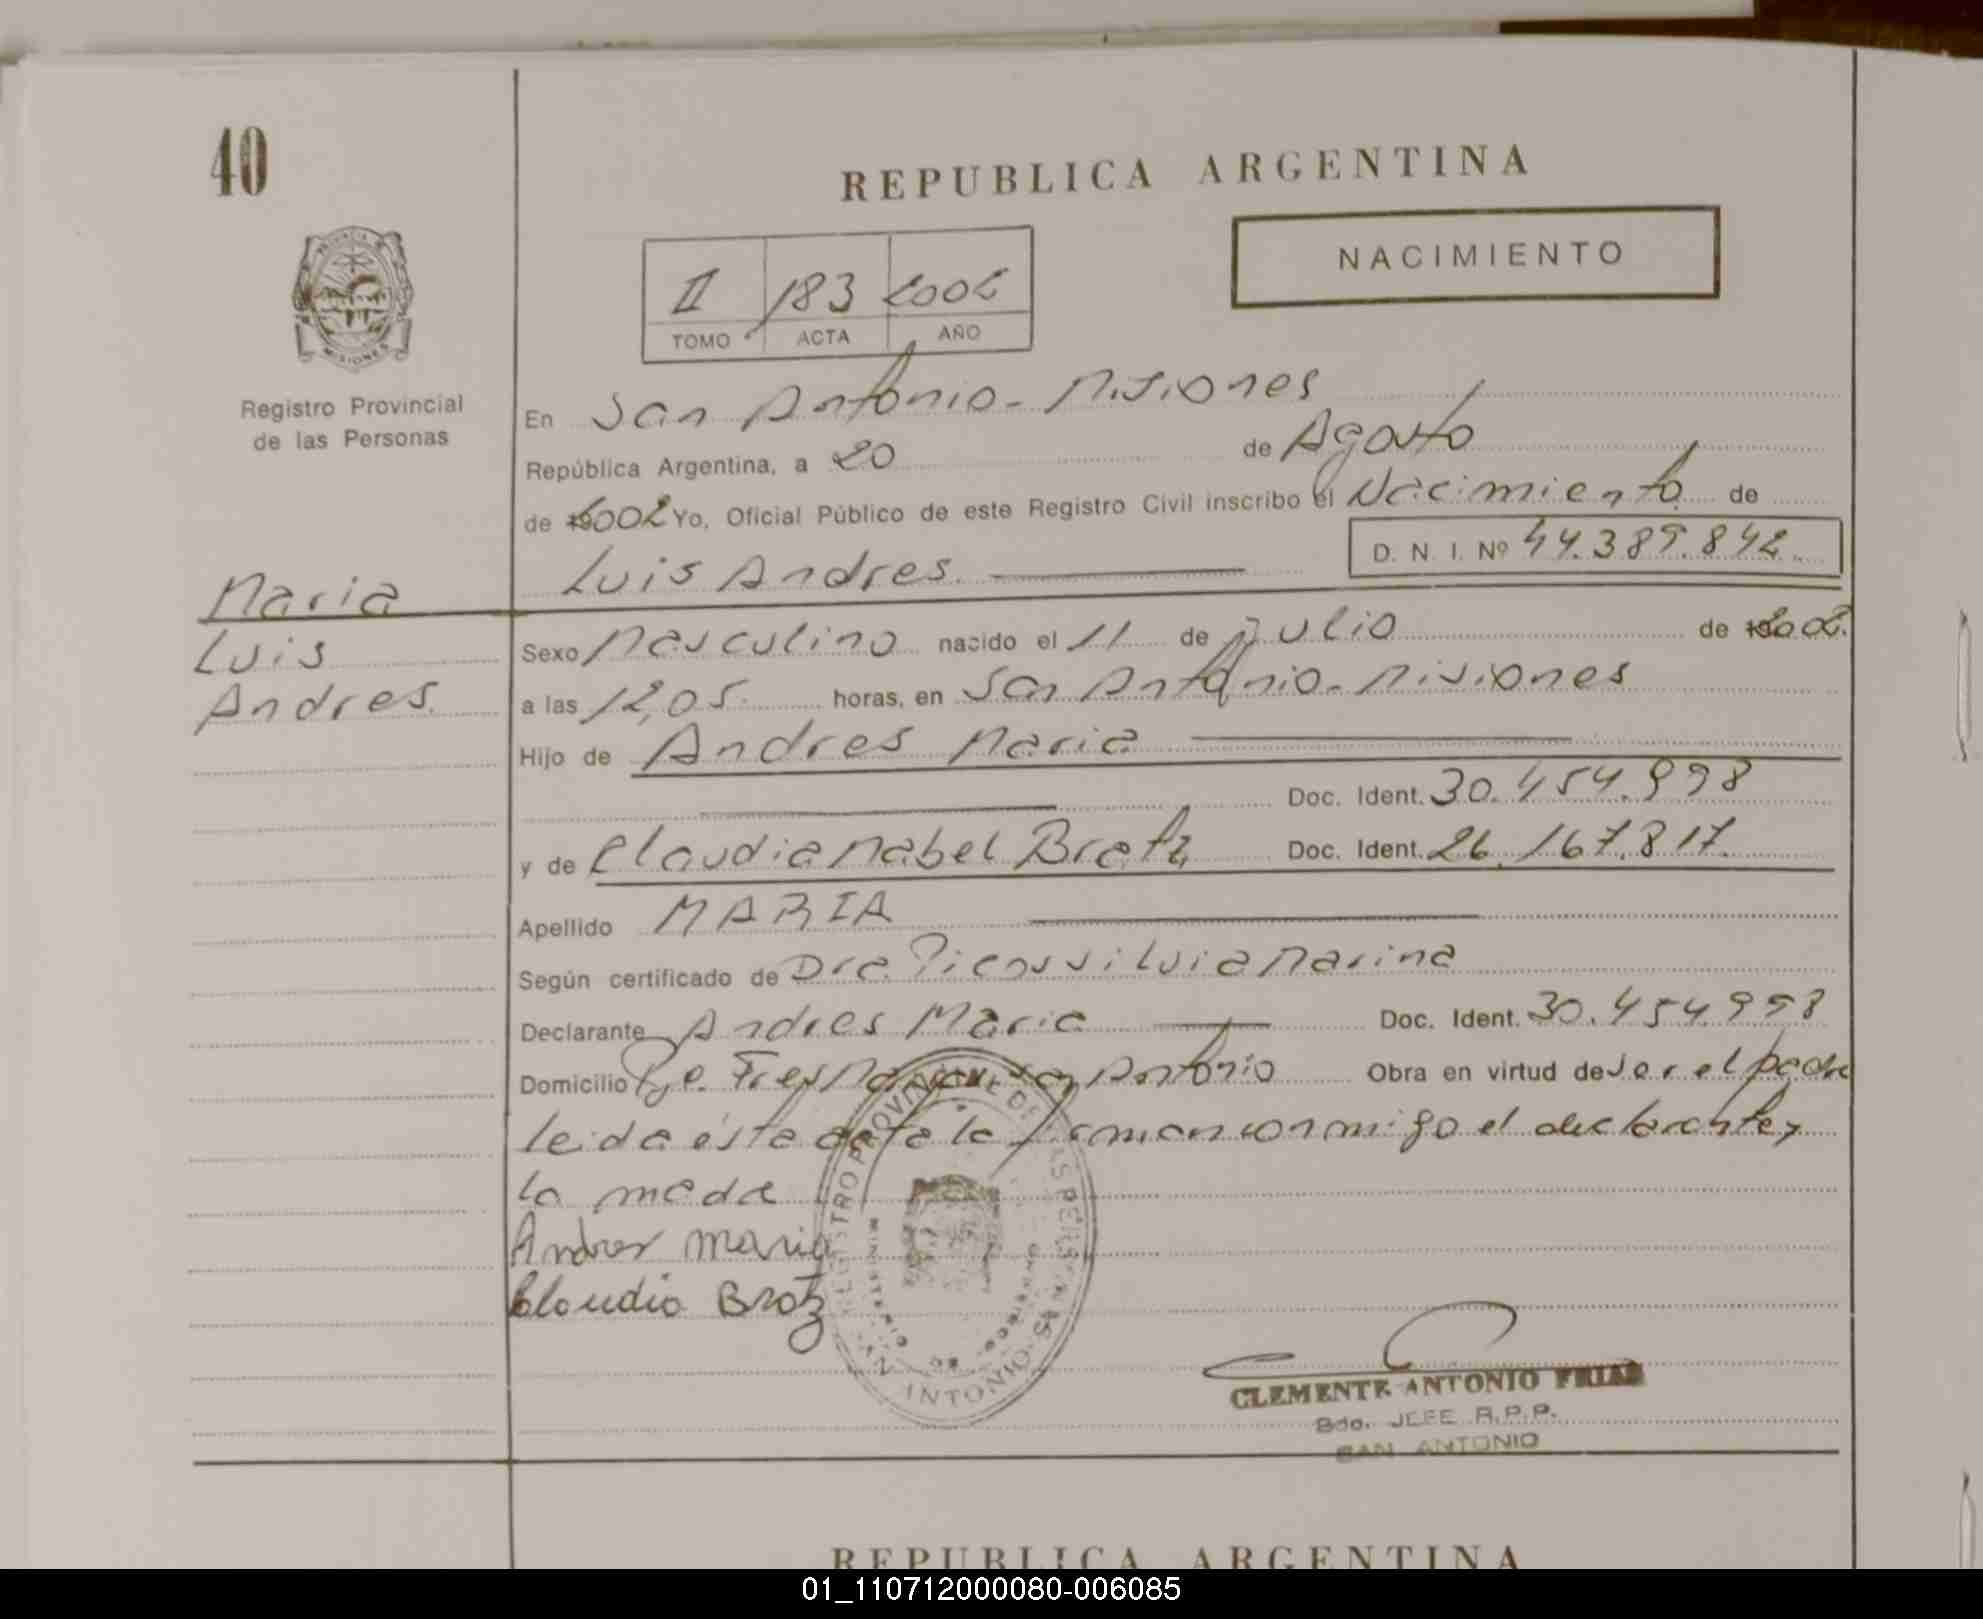 40
REPUBLICA ARGENTINA
NACIMIENTO
II 183 2002
TOMO ACTA AÑO
PROVINCIA DE MISIONES
Registro Provincial
de las Personas
En San Antonio - Misiones
República Argentina, a 20 de Agosto
de 2002 Yo, Oficial Público de este Registro Civil inscribo el Nacimiento de
D. N. I. Nº 44.389.842
Luis Andres
Maria
Luis
Andres
Sexo Masculino nacido el 11 de Julio de 2002
a las 12,05 horas, en San Antonio - Misiones
Hijo de Andres Maria
Doc. Ident. 30.454.998
y de Claudia Mabel Bratz Doc. Ident. 26.167.817
Apellido MARIA
Según certificado de Dra. Silvia Marina
Declarante Andres Maria Doc. Ident. 30.454.998
Domicilio San Antonio Obra en virtud de ser el padre
leida ésta acta la firman conmigo el declarante y
la madre
Andres Maria
Claudia Bratz
REGISTRO PROVINCIAL DE LAS PERSONAS
MINISTERIO DE GOBIERNO
SAN ANTONIO
CLEMENTE ANTONIO FRIAS
JEFE R.P.P.
SAN ANTONIO
REPUBLICA ARGENTINA
01_110712000080-006085